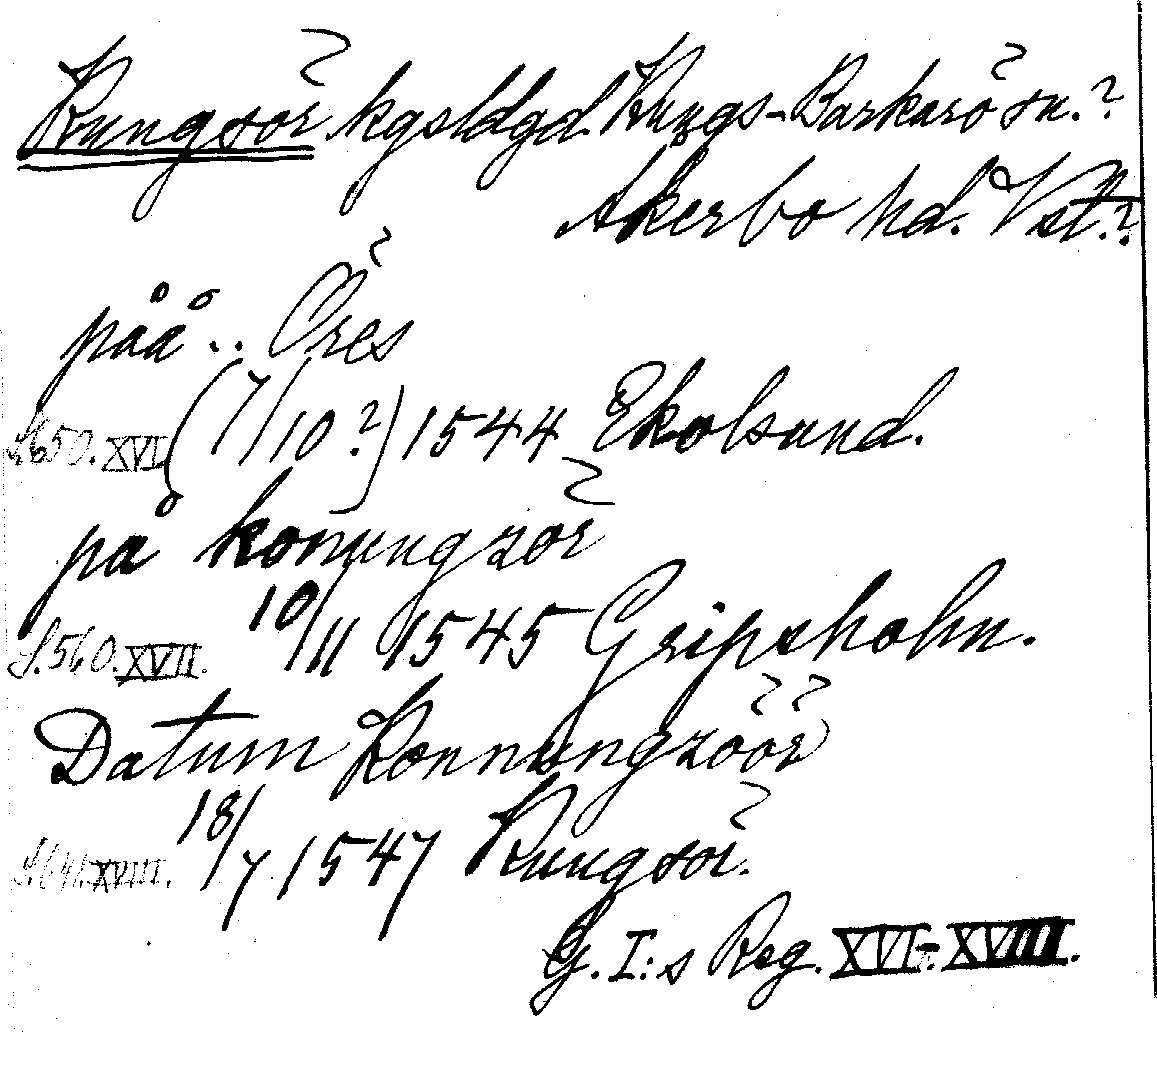 Kungsör kgsldgd. Kungs-Barkarö sn.?
Åkerbo hd. Vstl.?
påå .. Öres
S. 650. XVI (7/10 ?) 1544 Ekolsund.
på konungzör
S. 560. XVII. 10/11 1545 Gripsholm.
Datum Konnungzöör
S. 641. XVIII. 18/7 1547 Kungsör.
G. I:s Reg. XVI-XVIII.